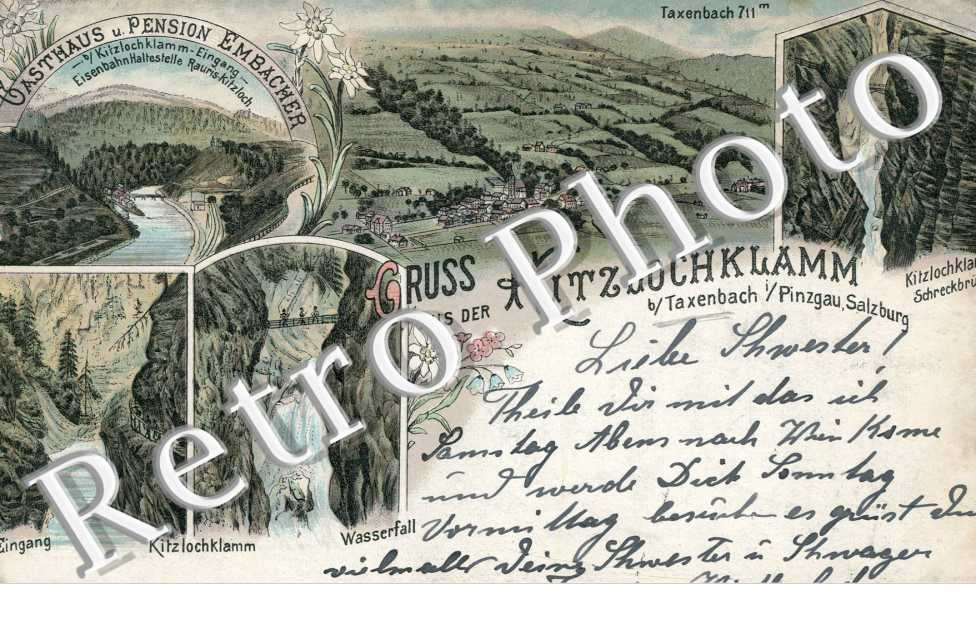 GASTHAUS u. PENSION EMBACHER
b/ Kitzlochklamm-Eingang
Eisenbahn Haltestelle Rauris-Kitzloch
Taxenbach 711 m
Kitzlochklam
Schreckbrü
GRUSS
AUS DER KITZLOCHKLAMM
b/ Taxenbach i/ Pinzgau, Salzburg
Eingang
Kitzlochklamm
Wasserfall
Liebe Shwester!
Theile Dir mit das ich
Samstag Abens nach Wien Kome
und werde Dich Sonntag
Vormittag besuchen es grüst Dich
vielmalls Deine Shwester u Shwager
Retro Photo